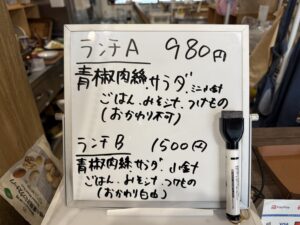 ランチA 980円
青椒肉絲.サラダ.ミニ小鉢
ごはん.みそ汁.つけもの
(おかわり不可)
ランチB 1500円
青椒肉絲 サラダ.小鉢
ごはん.みそ汁.つけもの
(おかわり自由)